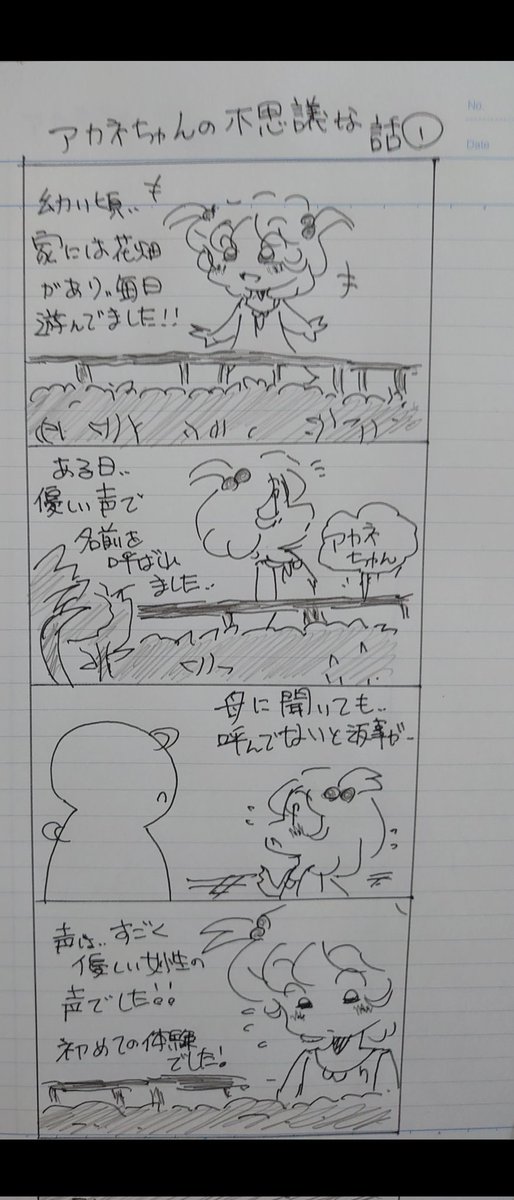 No.
Date
アカネちゃんの不思議な話①
幼い頃、、
家には花畑
があり、、毎日
遊んでました!!
ある日、、
優しい声で
名前を
呼ばれ
ました、、
アカネ
ちゃん
母に聞いても、、
呼んでないと返事が、、
声は、、すごく
優しい女性の
声でした!!
初めての体験
でした!